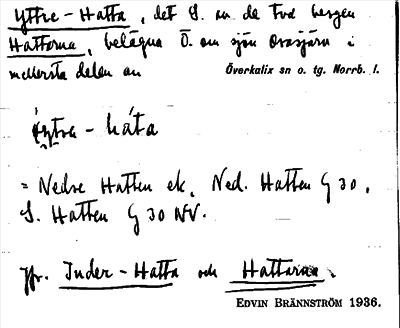 Yttre-Hatta, det S. av de två bergen
Hattarna, belägna Ö. om sjön Orasjärv i
mellersta delen av Överkalix sn o. tg. Norrb. l.
ý̨tra-háta
= Nedre Hatten ek., Ned. Hatten G 30,
S. Hatten G 30 NV.
Jfr. Inder-Hatta och Hattarna.
EDVIN BRÄNNSTRÖM 1936.